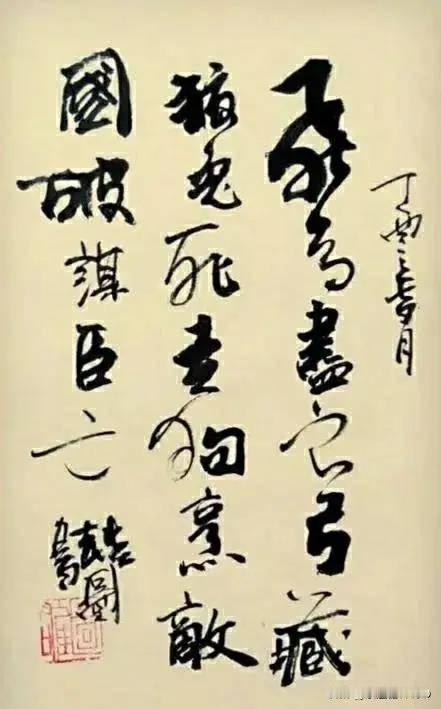 丁酉月
飛鳥盡良弓藏
狡兔死走狗烹敵
國破謀臣亡